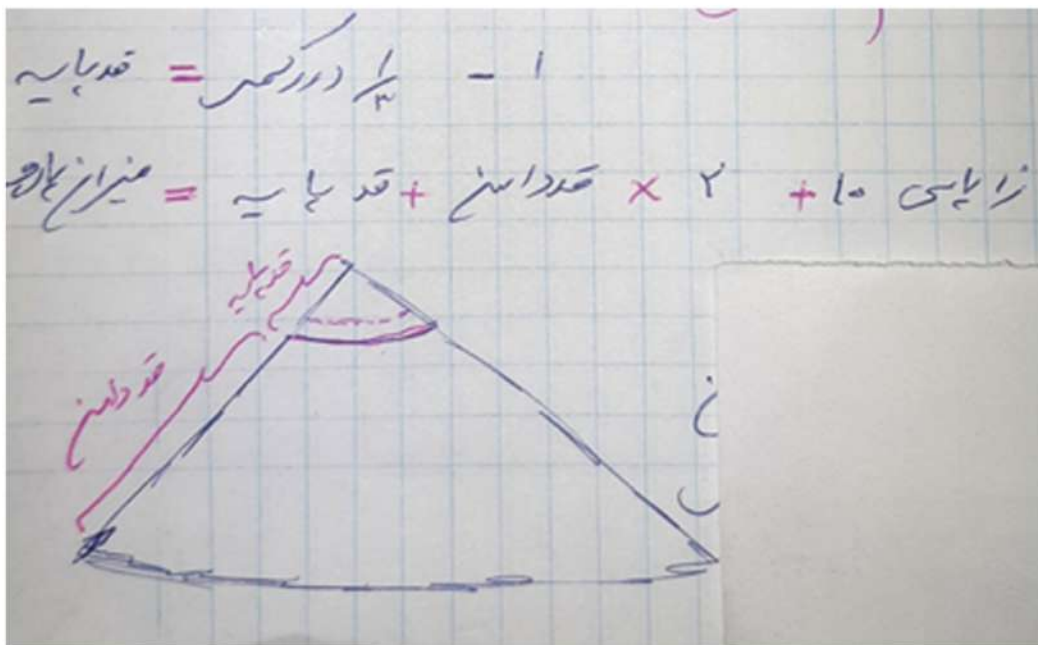 قد پایه = ۱/۳ دور کمر - ۱
میزان پارچه = قد پایه + قد دامن × ۲ + ۱۰ زاپاس
قد پایه
قد دامن